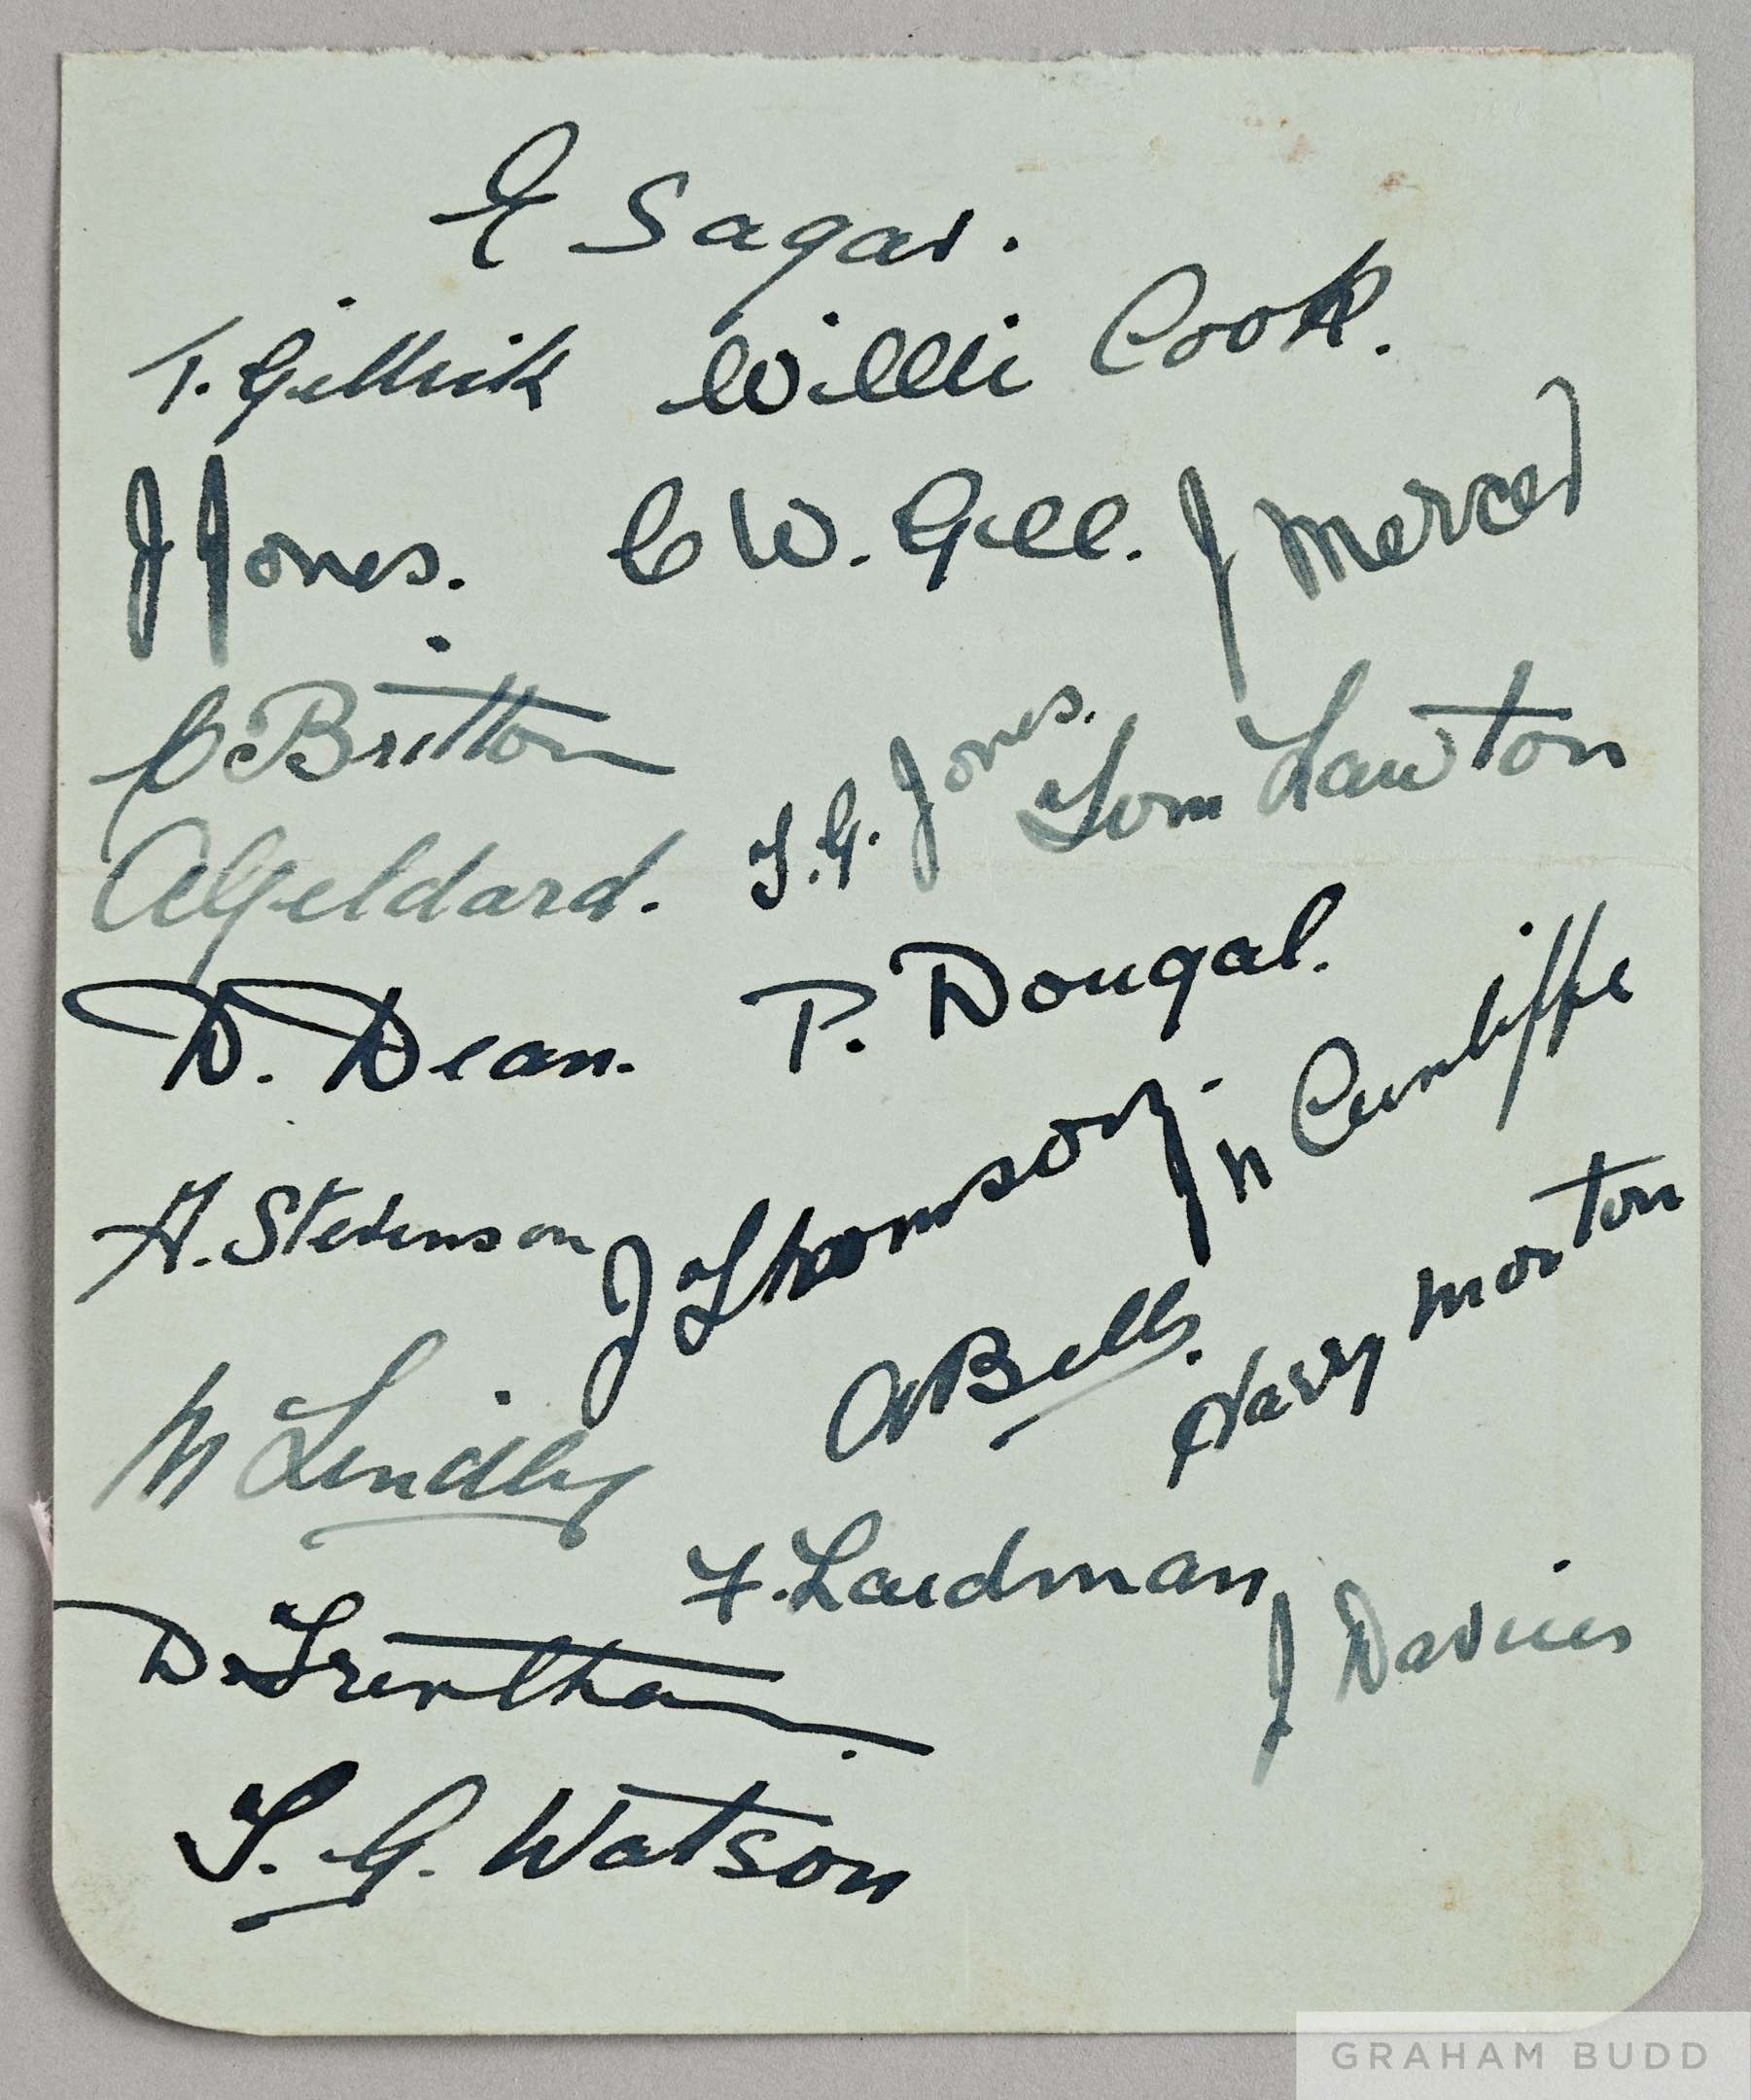 E Sagar.
T. Gillick Willie Cook.
J Jones. C W. Gee. J Mercer
C Britton T.G. Jones. Tom Lawton
A Geldard.
D. Dean. P. Dougal.
H. Stevenson J Thomson. N Cunliffe
M Lindley A Bell. Harry Morton
F. Laidman J Davies
D. Trentham
T. G. Watson
GRAHAM BUDD